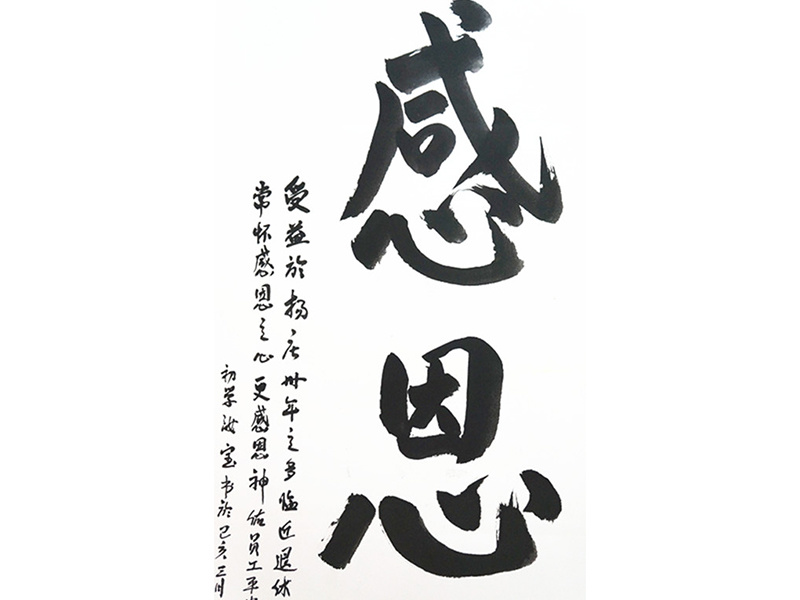 感恩
受益於扬庄卅年之多临近退休
常怀感恩之心更感恩神佑员工平
初学汝宝书於己亥三月